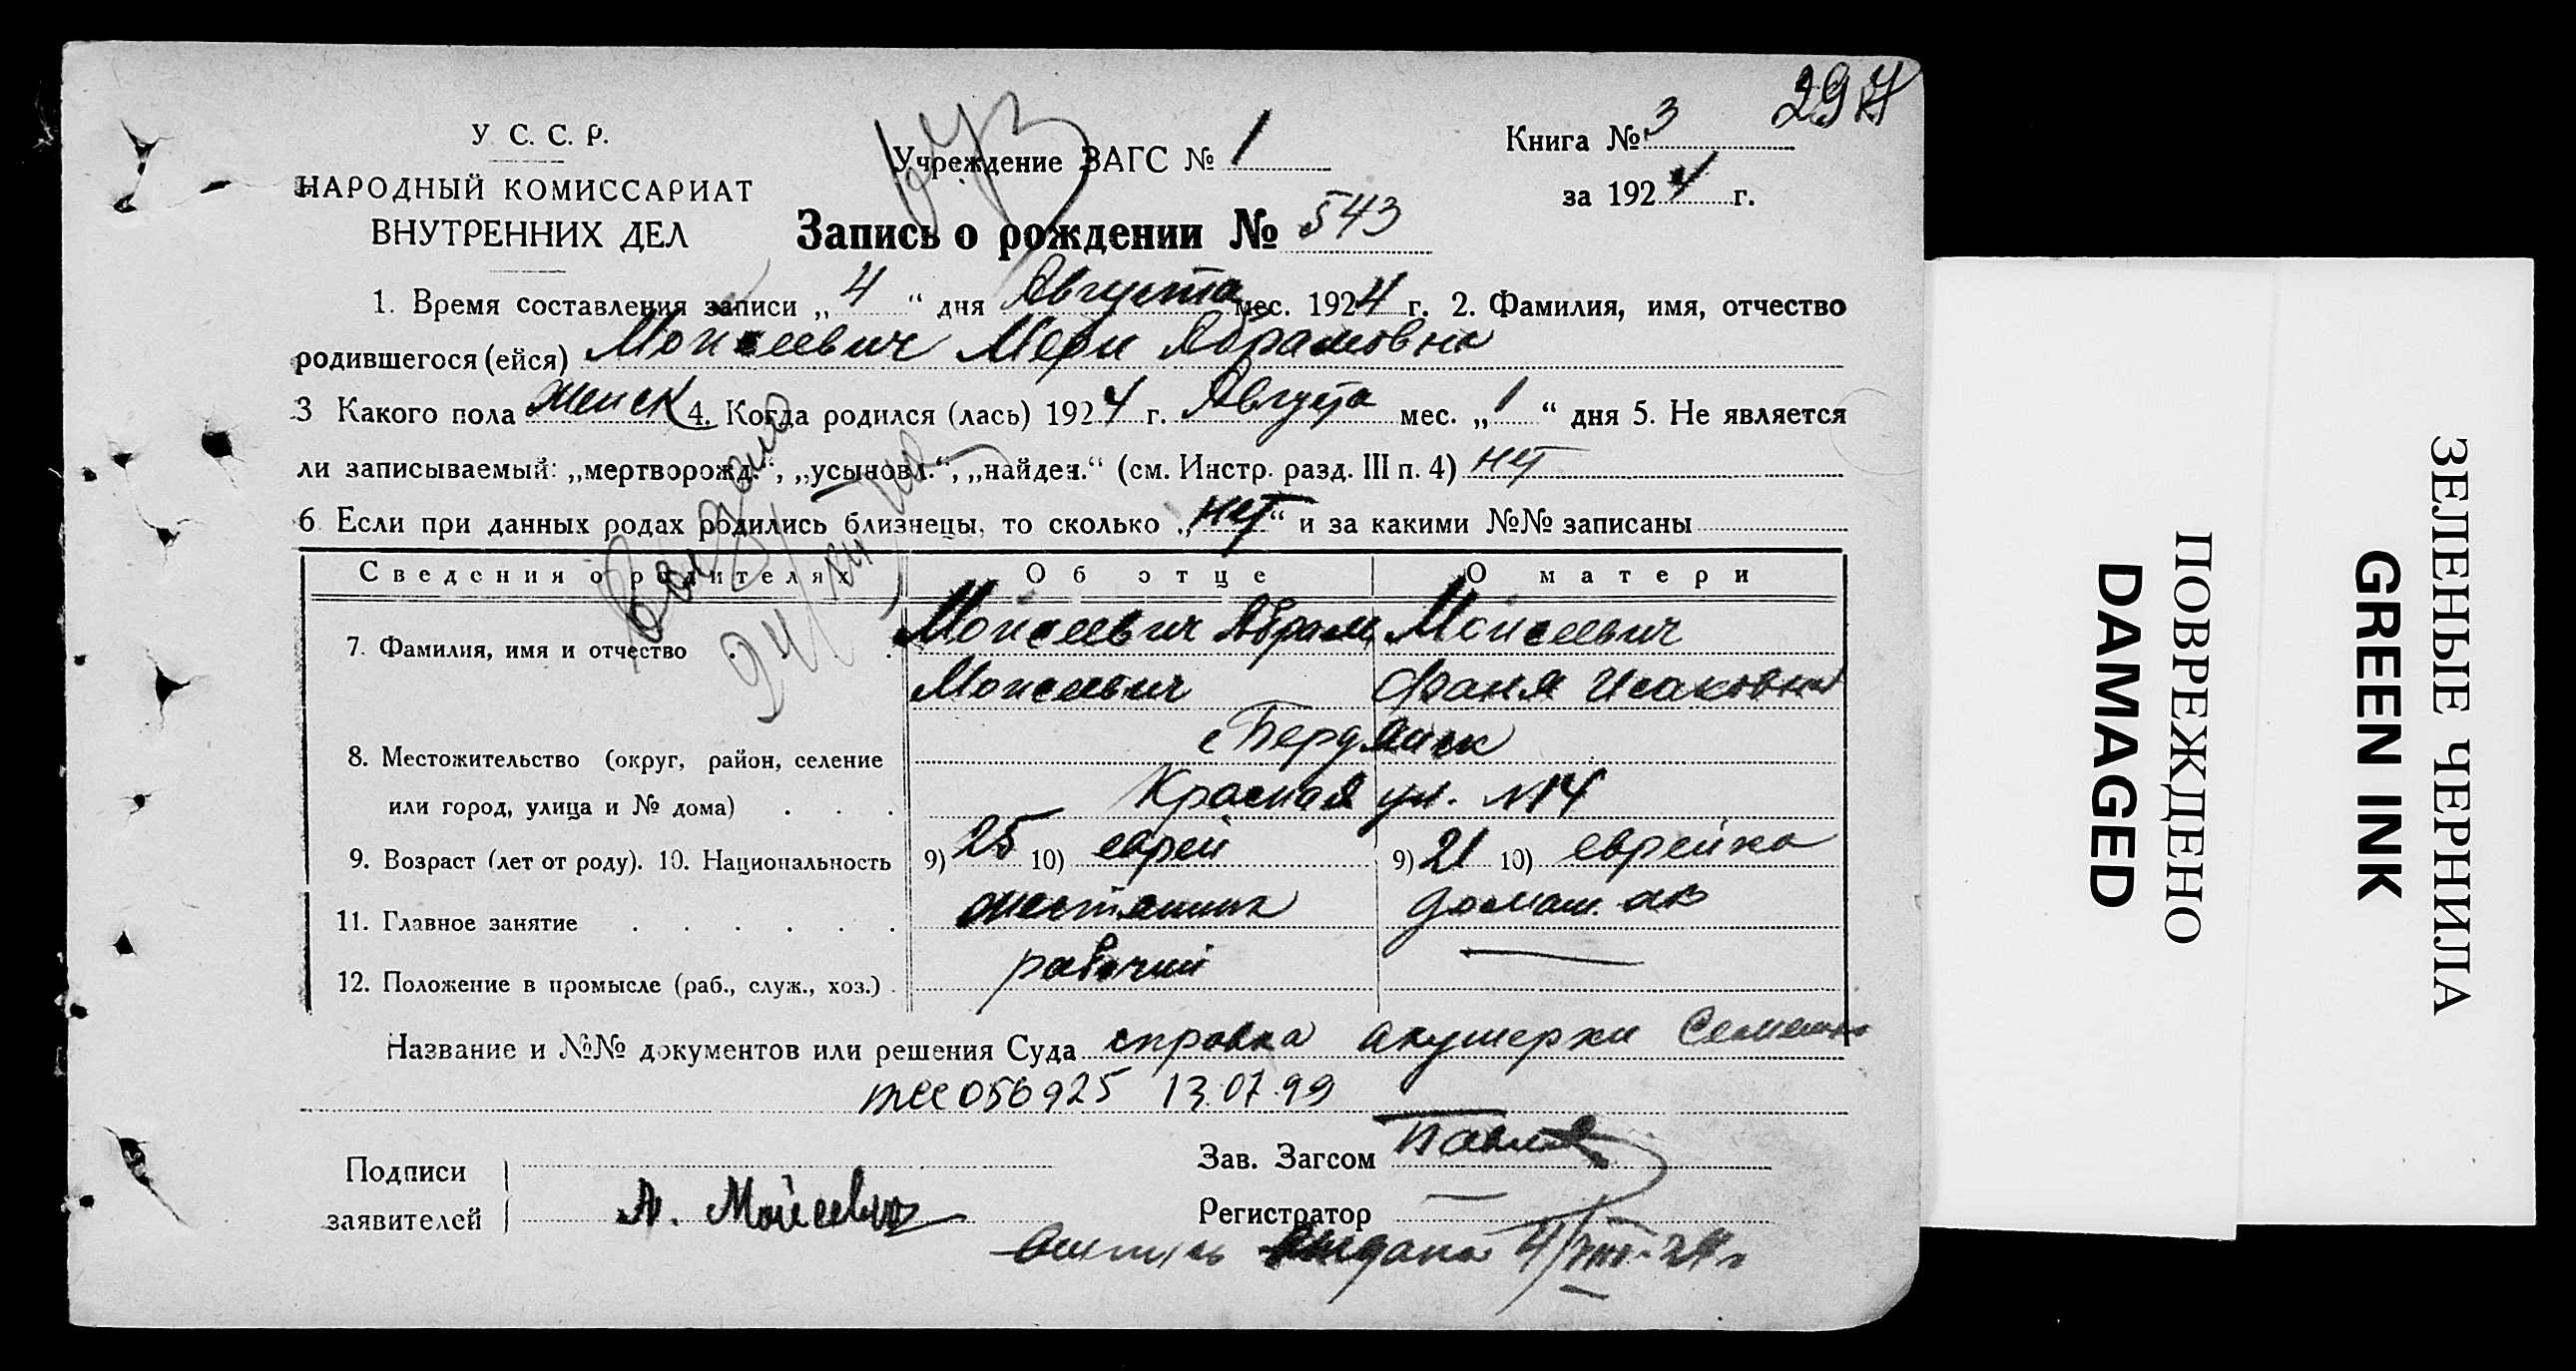 297
У. С. С. Р.
НАРОДНЫЙ КОМИССАРИАТ
ВНУТРЕННИХ ДЕЛ
Учреждение ЗАГС № 1
Книга № 3
за 1924 г.
Запись о рождении № 543
1. Время составления записи „4“ дня Августа мес. 1924 г. 2. Фамилия, имя, отчество
родившегося (ейся) Моисеевич Мери Абрамовна
3 Какого пола женск 4. Когда родился (лась) 1924 г. Августа мес. „1“ дня 5. Не является
ли записываемый: „мертворожд.“, „усыновл.“, „найден.“ (см. Инстр. разд. III п. 4) нет
6 Если при данных родах родились близнецы, то сколько „нет“ и за какими №№ записаны
Сведения о родителях Об отце О матери
7. Фамилия, имя и отчество Моисеевич Абрам Моисеевич
Моисеевич Фаня Исаковна
г Бердянск
8. Местожительство (округ, район, селение
или город, улица и № дома) Красная ул. №14
9. Возраст (лет от роду). 10. Национальность 9) 25 10) еврей 9) 21 10) еврейка
11. Главное занятие жестянник домаш.
12. Положение в промысле (раб., служ., хоз.) рабочий
Название и №№ документов или решения Суда справка акушерки
056925 13.07.99
Подписи
заявителей А. Моисеевич
Зав. Загсом
Регистратор
выдана 4/VIII-24 г
ПОВРЕЖДЕНО
DAMAGED
ЗЕЛЕНЫЕ ЧЕРНИЛА
GREEN INK